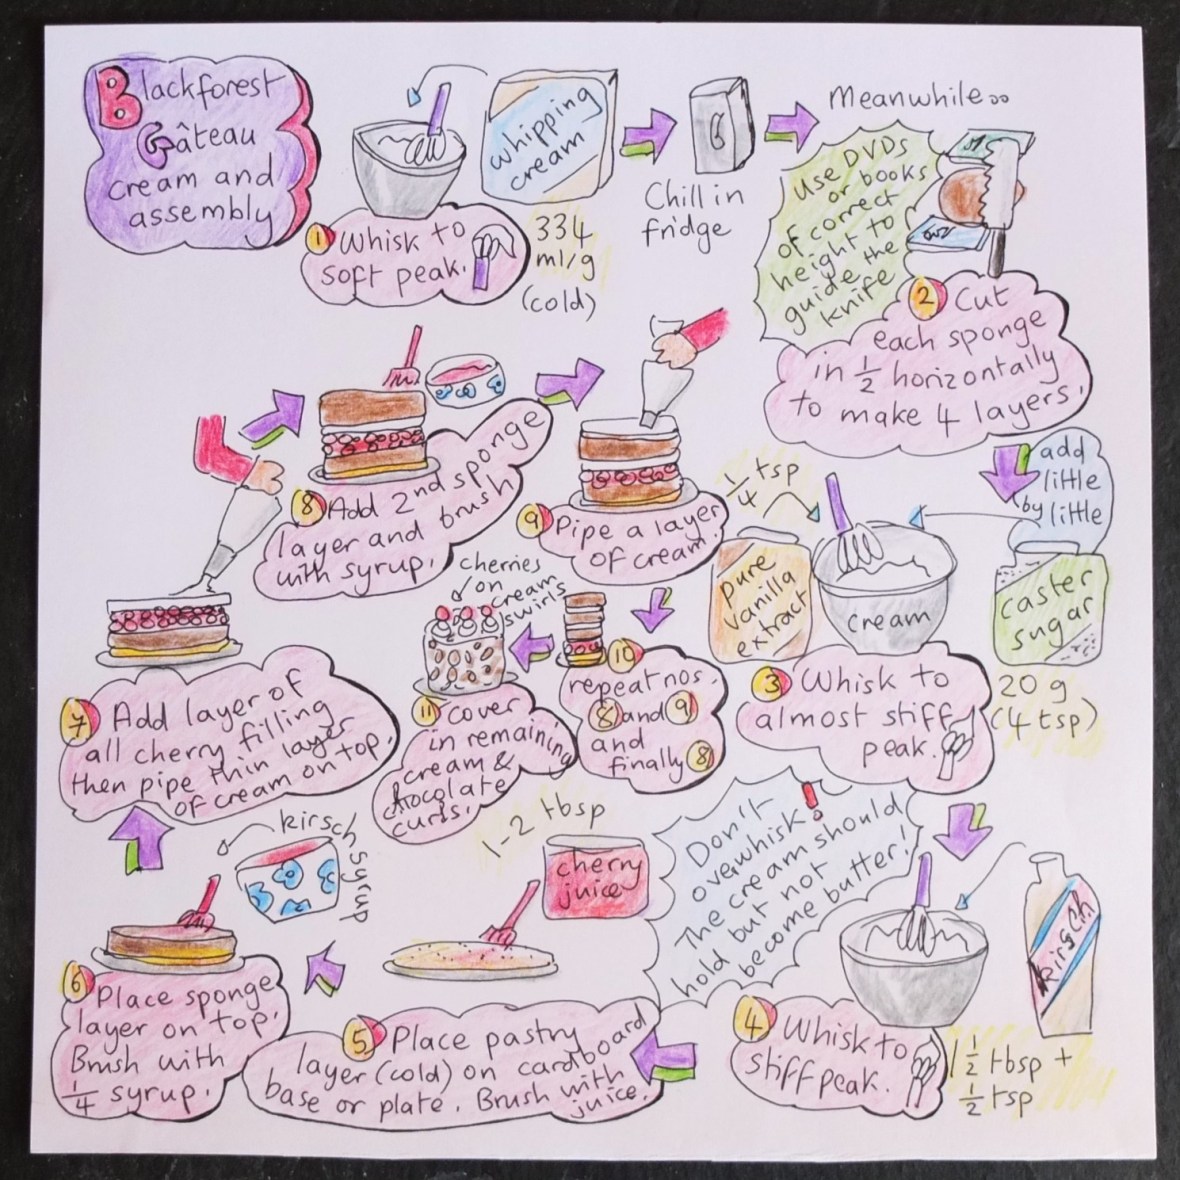 Blackforest
Gâteau
cream and
assembly
whipping
cream
1 Whisk to
soft peak.
334
ml/g
(cold)
Chill in
fridge
Meanwhile
Use DVDs
or books
of correct
height to
guide the
knife
DVD
2 Cut
each sponge
in 1/2 horizontally
to make 4 layers.
add
little
by little
1/4 tsp
pure
vanilla
extract
cream
caster
sugar
3 Whisk to
almost stiff
peak.
20 g
(4 tsp)
Don't
overwhisk!
The cream should
hold but not
become butter!
kirsch
4 Whisk to
stiff peak.
1 1/2 tbsp +
1/2 tsp
1-2 tbsp
cherry
juice
5 Place pastry
layer (cold) on cardboard
base or plate. Brush with
juice.
kirsch syrup
6 Place sponge
layer on top.
Brush with
1/4 syrup.
7 Add layer of
all cherry filling
then pipe thin layer
of cream on top.
8 Add 2nd sponge
layer and brush
with syrup.
9 Pipe a layer
of cream.
10
repeat nos.
8 and 9
and
finally 8
cherries
on
cream
swirls
11 cover
in remaining
cream &
chocolate
curls.